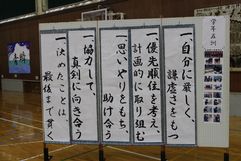 学年五訓
一、自分に厳しく、
謙虚さをもつ
一、優先順位を考え、
計画的に取り組む
一、思いやりをもち、
助け合う
一、協力して、
真剣に向き合う
一、決めたことは、
最後まで貫く